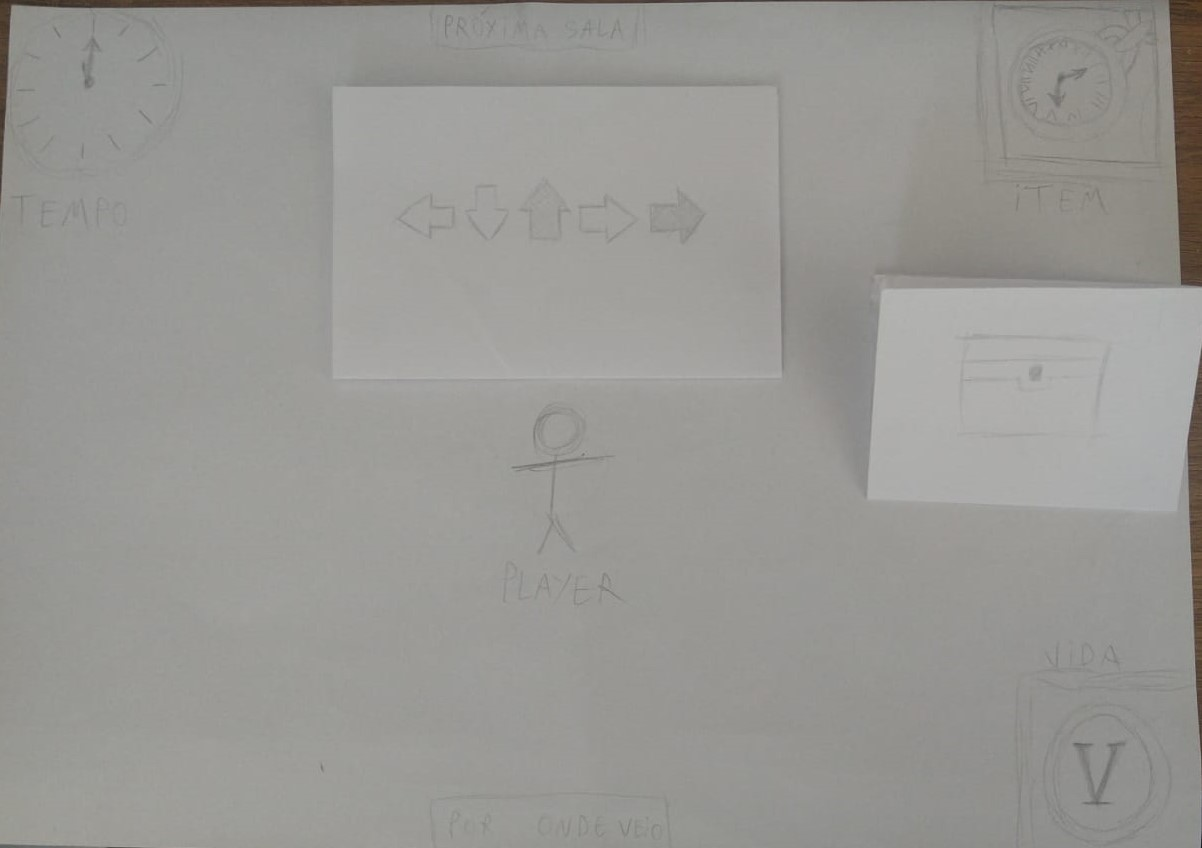 PRÓXIMA SALA
TEMPO
ITEM
PLAYER
VIDA
V
POR ONDE VEIO